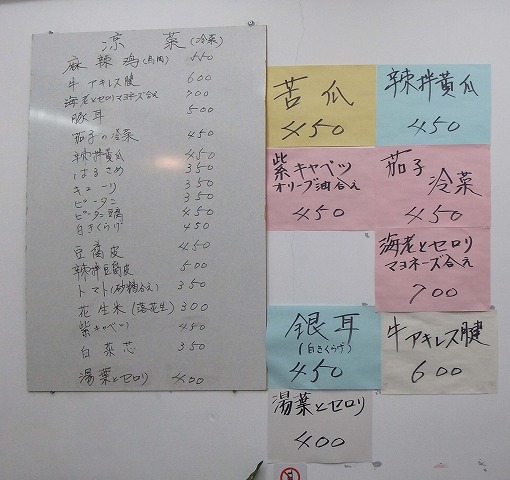 涼菜(冷菜)
麻辣鸡(蒸肉) 550
牛アキレス腱 600
海老とセロリマヨネーズ合え 700
豚耳 500
茄子の冷菜 450
辣拌黄瓜 450
はるさめ 350
キューリ 350
ピータン 350
ピータン豆腐 450
白きくらげ 450
豆腐皮 450
辣拌豆腐皮 500
トマト(砂糖合え) 350
花生米(落花生) 300
紫キャベツ 450
白菜芯 350
湯葉とセロリ 400
苦瓜
450
辣拌黄瓜
450
紫キャベツ
オリーブ油合え
450
茄子
冷菜
450
海老とセロリ
マヨネーズ合え
700
银耳
(白きくらげ)
450
牛アキレス腱
600
湯葉とセロリ
400